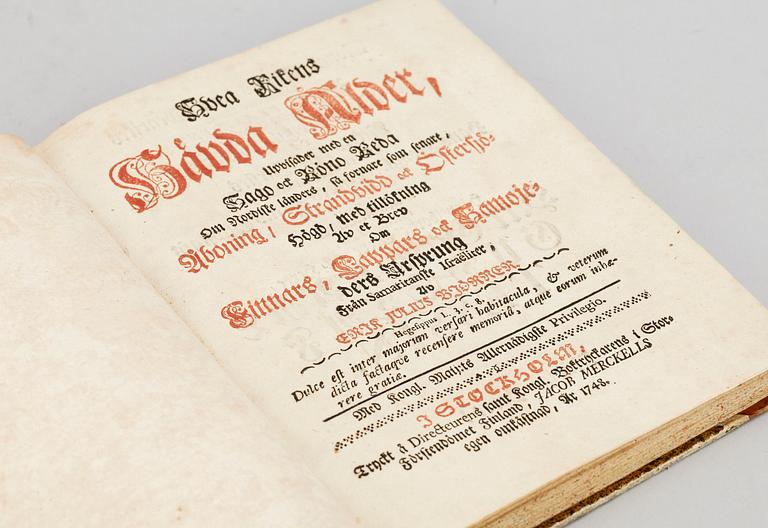 Svea Rikens
Hävda Ålder,
Uppvisader med en
Sago och Röno Reda
Om Nordiske länders, så fornare som senare,
Åboning, Strandvidd och Östersjö-
Högd, med tillökning
Av et Brev
Om
Finnars, Lappars och Hamoje-
ders Ursprung
Från Samaritanske Israeliter,
Av
ERIK JULIUS BIÖRNER
Hegesippus L. 3. c. 8.
Dulce est inter majorum versari habitacula, & veterum
dicta factaque recensere memoriâ, atque eorum inhæ-
rere gratiæ.
Med Kongl. Maj:tts Allernådigste Privilegio.
I STOCKHOLM,
Tryckt å Directeurens samt Kongl. Boktryckarens i Stor-
Förstendömet Finland, JACOB MERCKELLS
egen omkåstnad, År 1748.